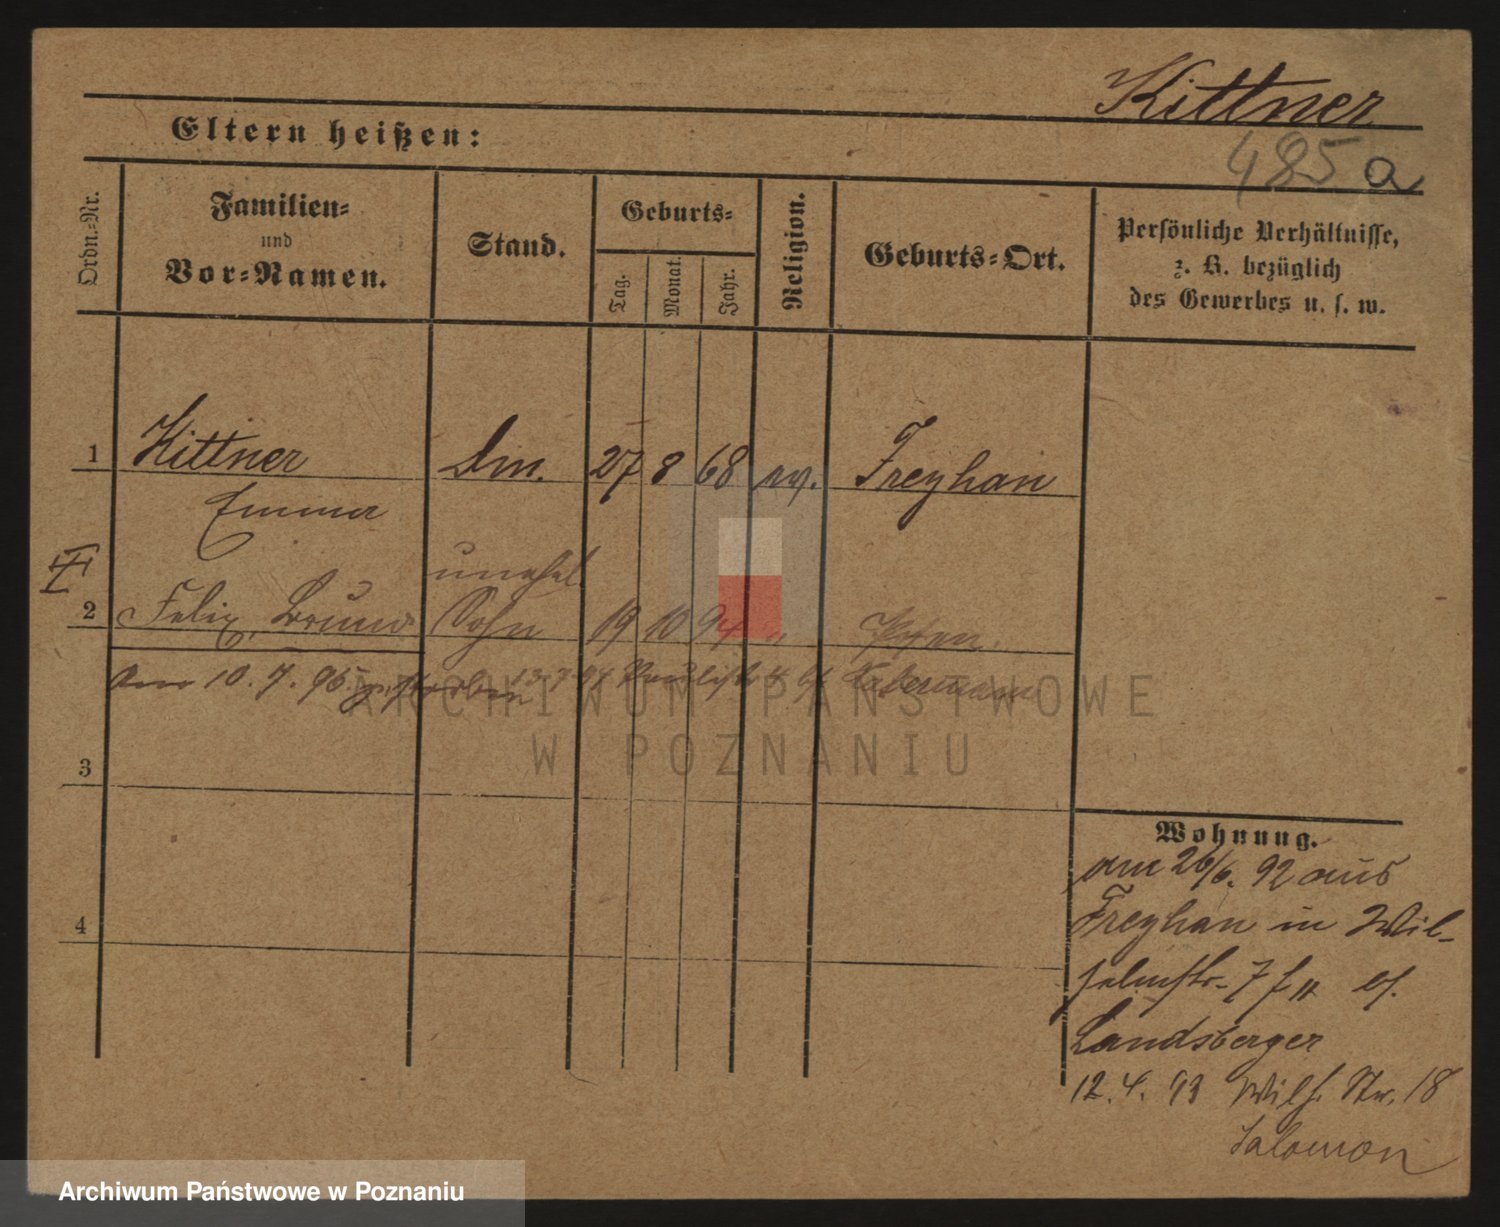 Kittner
Eltern heißen:
485 a
Ordn.=Nr.
Familien=
und
Vor=Namen.
Stand.
Geburts=
Tag.
Monat.
Jahr.
Religion.
Geburts=Ort.
Persönliche Verhältnisse,
z. B. bezüglich
des Gewerbes u. s. w.
1 Kittner Dm. 27 8 68 ev. Freyhan
Emma
unehel.
2 Felix, Bruno Sohn 19 10 94 " Posen.
Am 10. 7. 95 gestorben
3
4
Wohnung.
am 26/6. 92 aus
Freyhan in Wil-
helmstr. 7 bei
Landsberger
12. 4. 93 Wilh. Str. 18
Salomon
ARCHIWUM PAŃSTWOWE
W POZNANIU
Archiwum Państwowe w Poznaniu